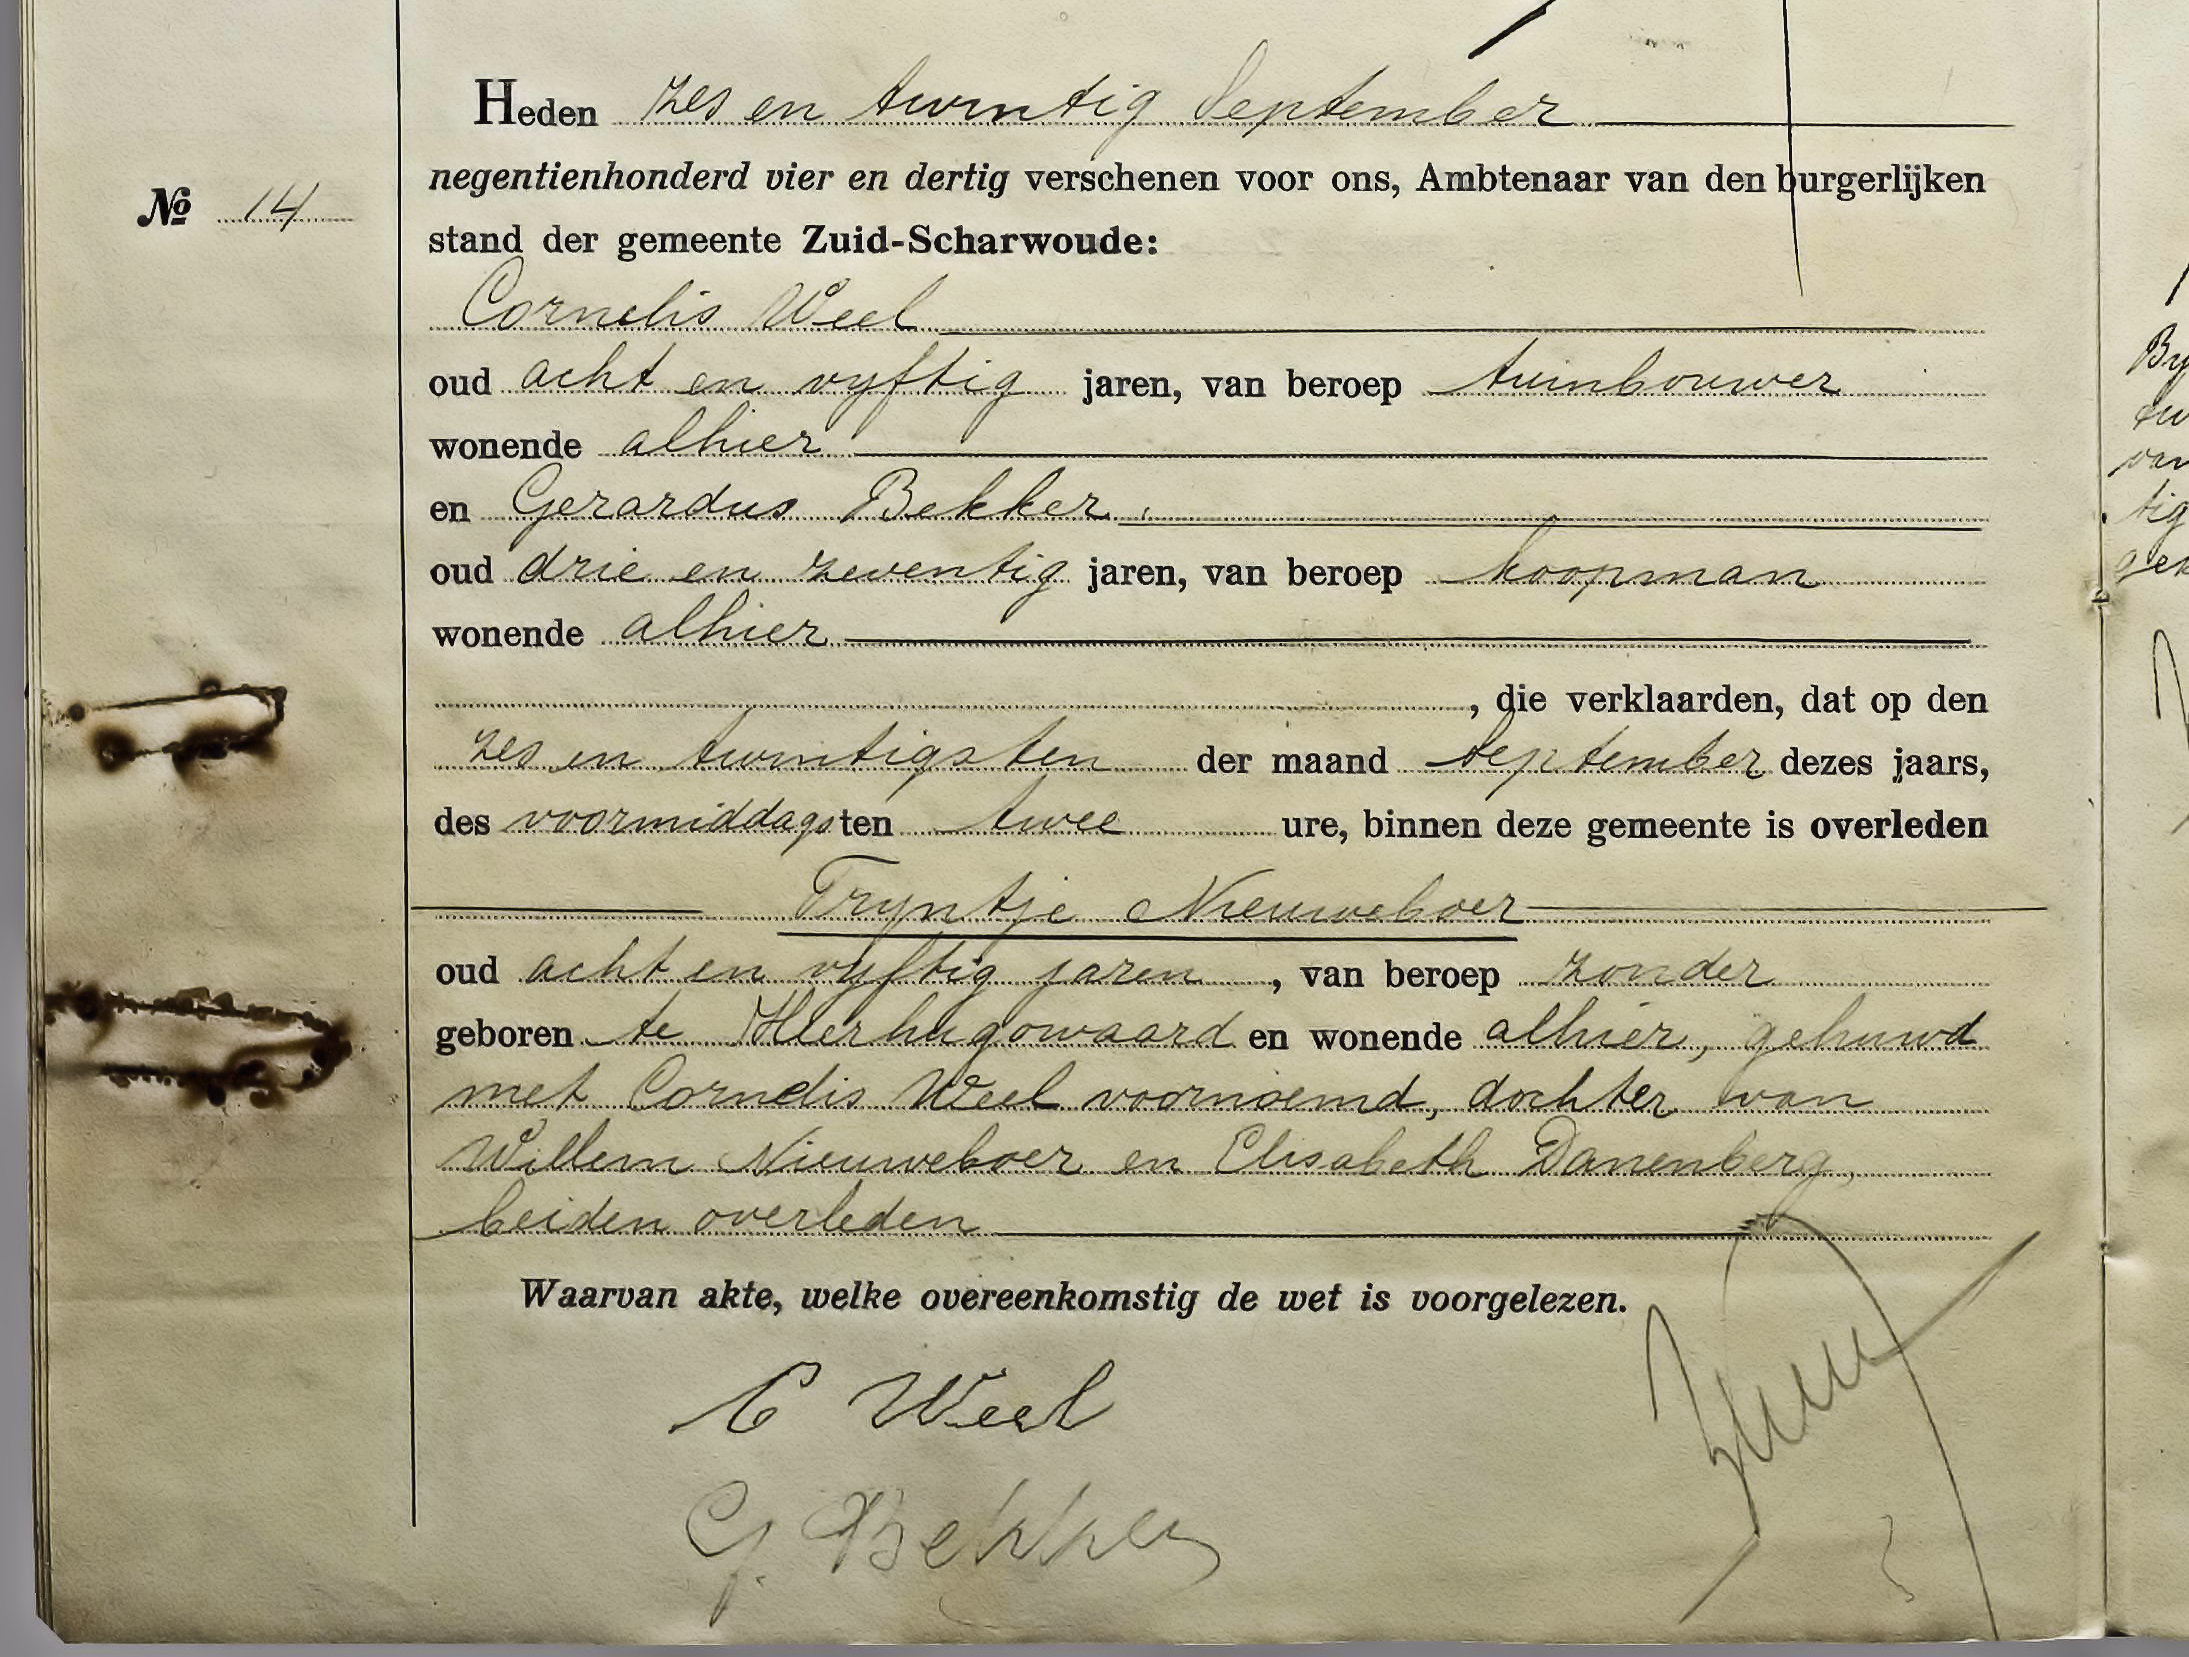 Heden zes en twintig September
negentienhonderd vier en dertig verschenen voor ons, Ambtenaar van den burgerlijken
No 14
stand der gemeente Zuid-Scharwoude:
Cornelis Weel
oud acht en vyftig jaren, van beroep tuinbouwer
wonende alhier
en Gerardus Bekker
oud drie en zeventig jaren, van beroep koopman
wonende alhier
, die verklaarden, dat op den
zes en twintigsten der maand September dezes jaars,
des voormiddags ten twee ure, binnen deze gemeente is overleden
Tryntje Nieuweboer
oud acht en vyftig jaren, van beroep zonder
geboren te Heerhugowaard en wonende alhier, gehuwd
met Cornelis Weel voornoemd, dochter van
Willem Nieuweboer en Elisabeth Danenberg,
beiden overleden
Waarvan akte, welke overeenkomstig de wet is voorgelezen.
C Weel
G. Bekker
By
tw
van
tig